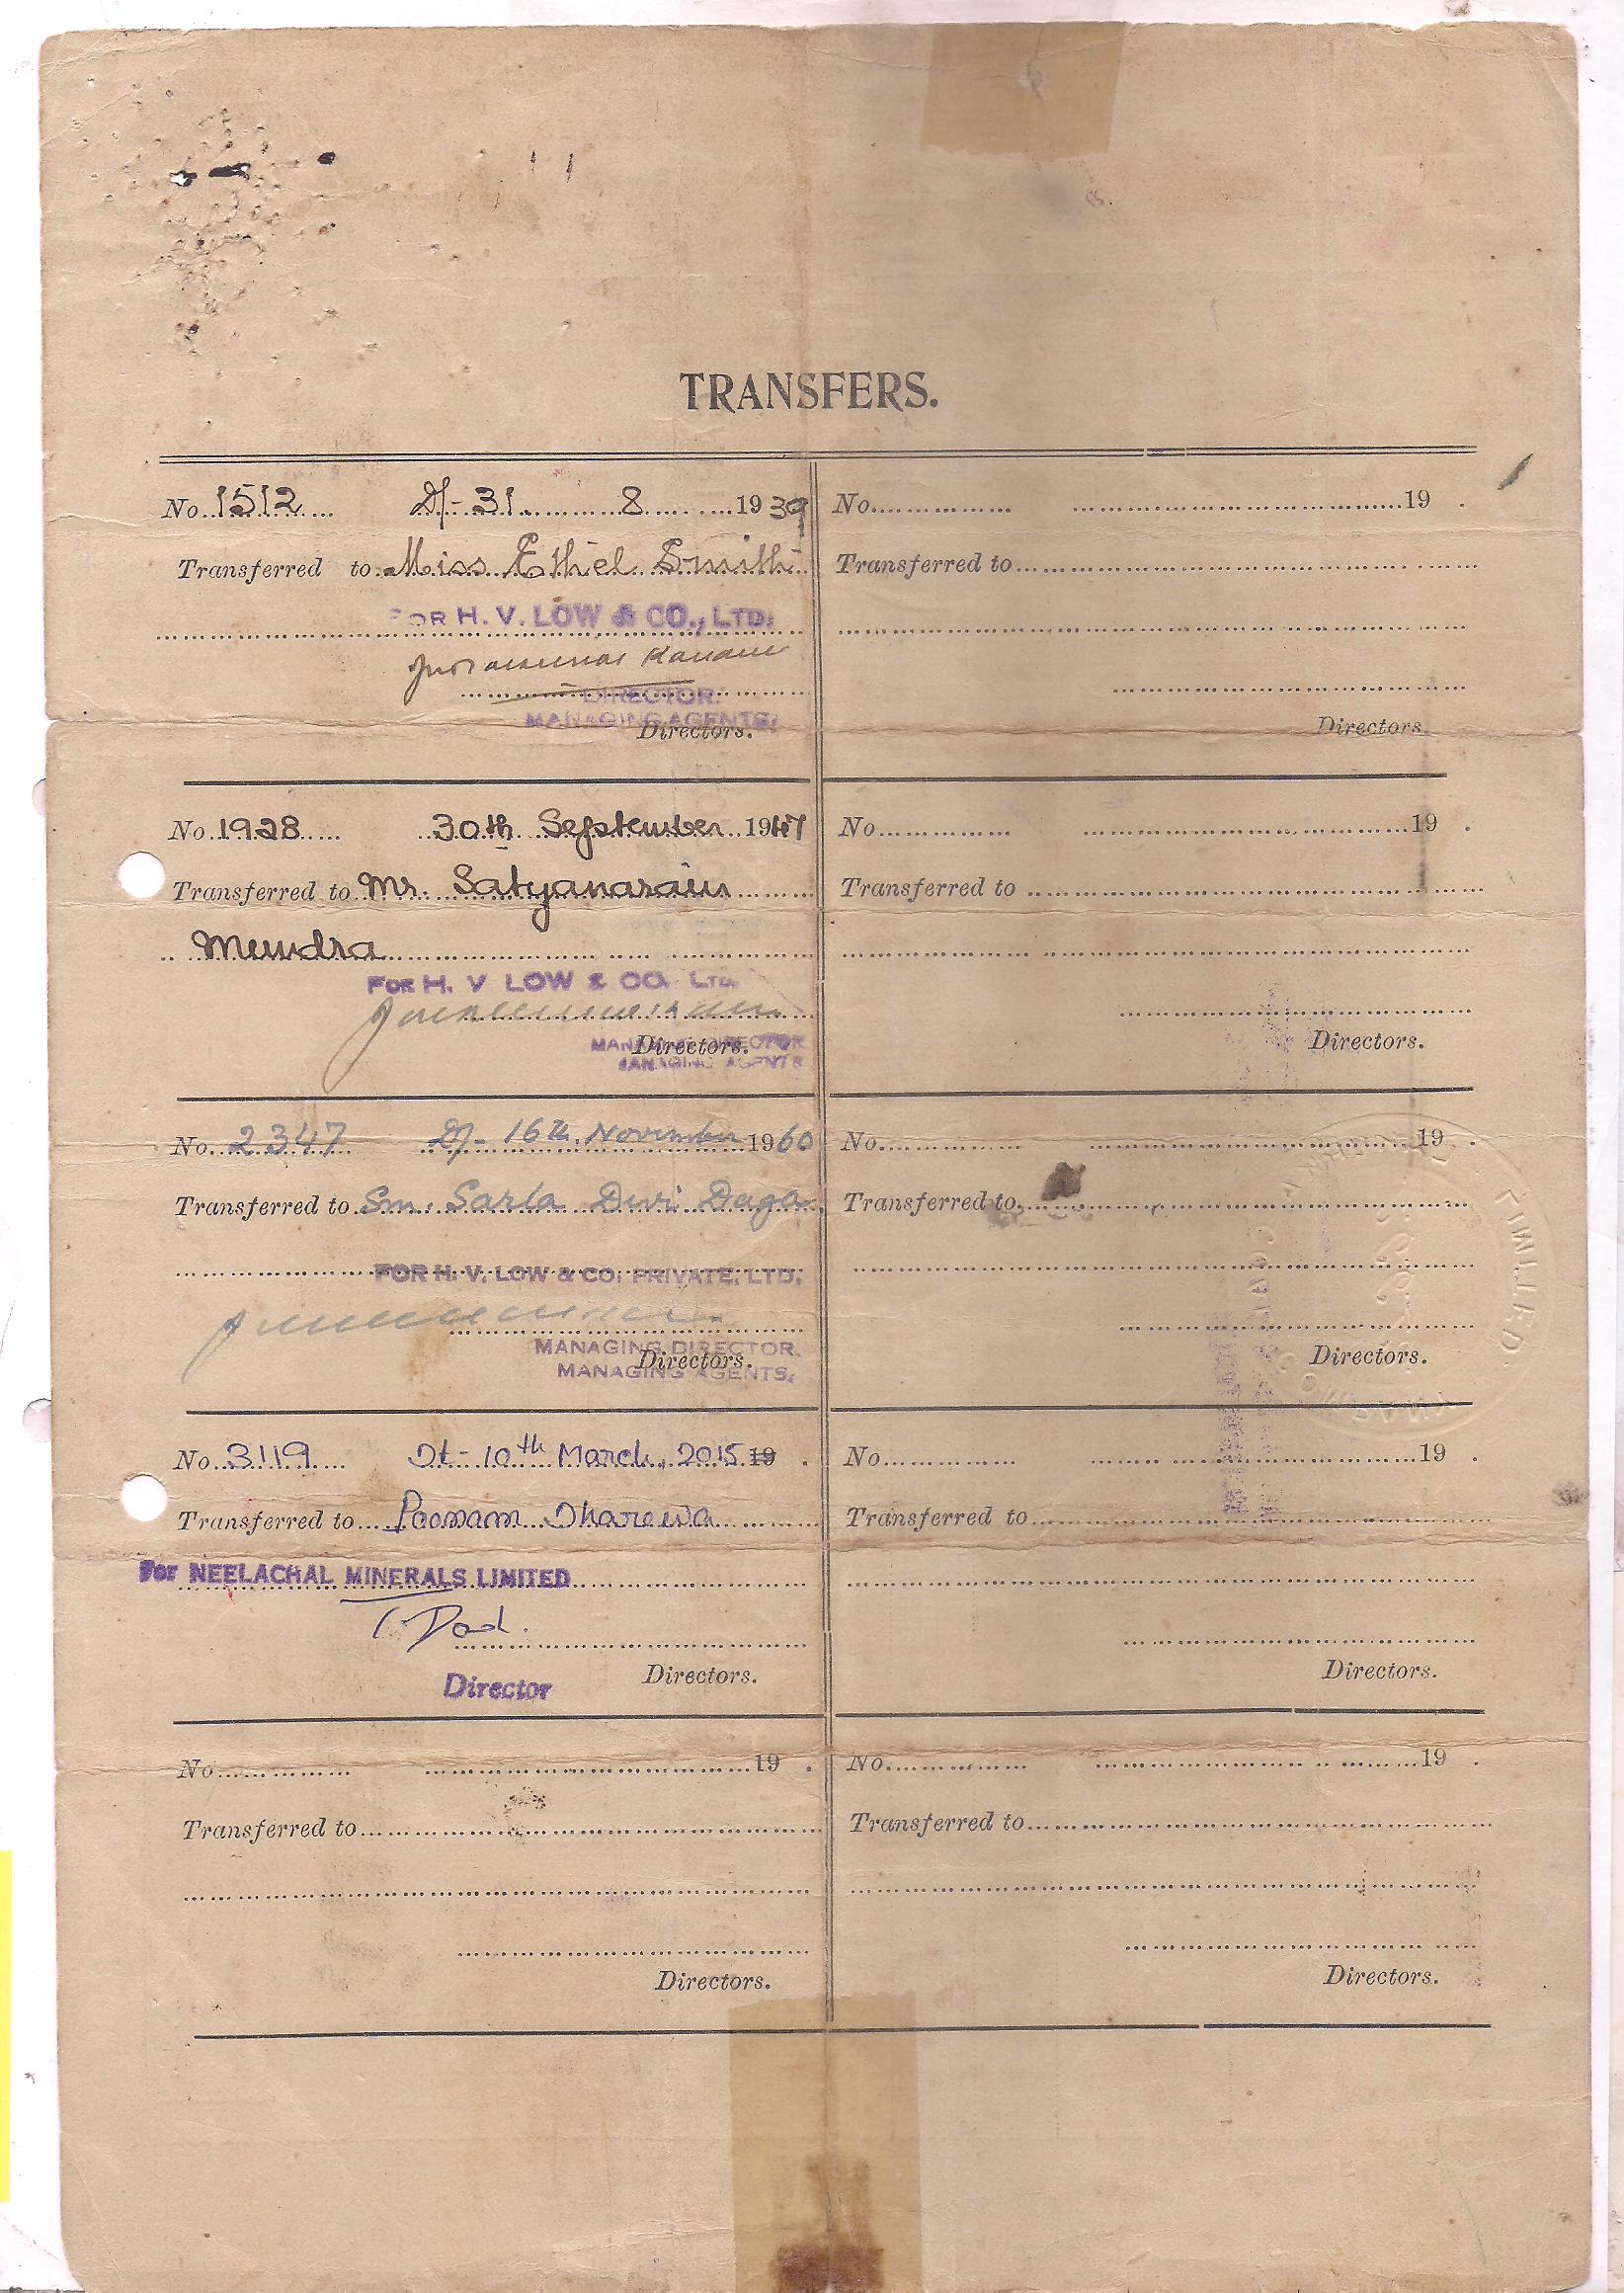 TRANSFERS.
No. 1512 Dt- 31 8 1939
Transferred to Miss Ethel Smith
FOR H. V. LOW & CO., LTD.
DIRECTOR.
MANAGING AGENTS.
Directors.
No. 1928 30th September 1947
Transferred to Mr. Satyanarain
Mundra
FOR H. V LOW & CO. LTD.
MANAGING DIRECTOR
MANAGING AGENTS
Directors.
No. 2347 Dt- 16th November 1960
Transferred to Sm. Sarla Devi Daga
FOR H. V. LOW & CO. PRIVATE. LTD.
MANAGING DIRECTOR.
MANAGING AGENTS.
Directors.
No. 3119 Dt- 10th March, 2015 19 .
Transferred to Poonam Dharewa
For NEELACHAL MINERALS LIMITED
Director
Directors.
No. 19 .
Transferred to
Directors.
No. 19 .
Transferred to
Directors.
No. 19 .
Transferred to
Directors.
No. 19 .
Transferred to
LIMITED.
Directors.
No. 19 .
Transferred to
Directors.
No. 19 .
Transferred to
Directors.